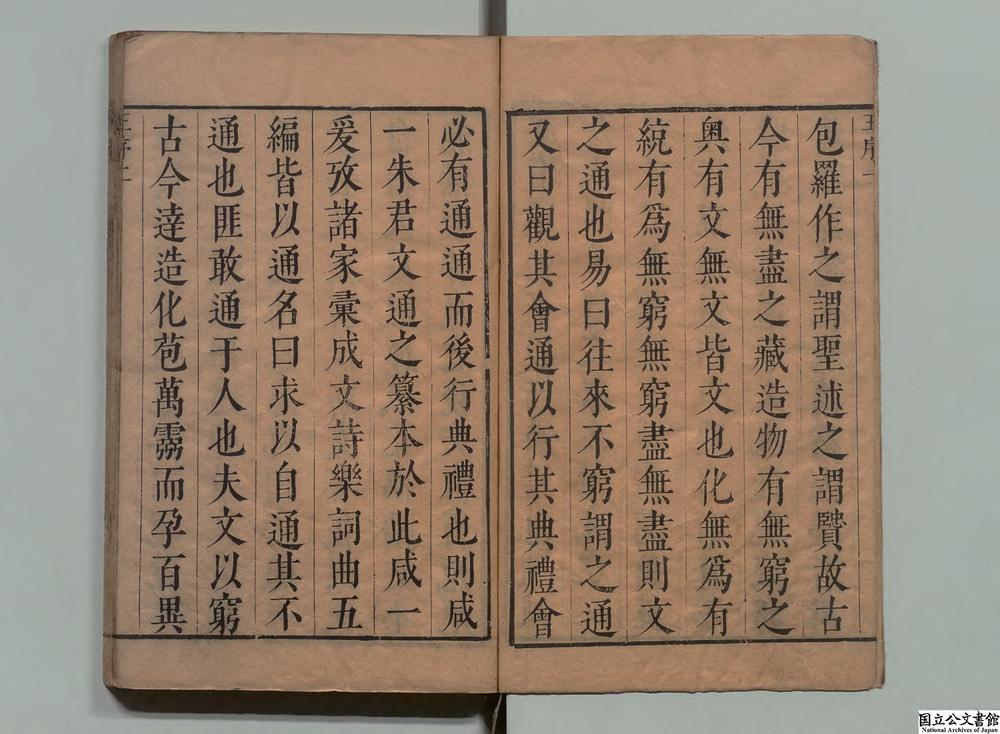 包羅作之謂聖述之謂贒故古
今有無盡之藏造物有無窮之
奥有文無文皆文也化無爲有
綂有爲無窮無窮盡無盡則文
之通也易曰往來不窮謂之通
又曰觀其會通以行其典禮會
必有通通而後行典禮也則咸
一朱君文通之纂本於此咸一
爰攷諸家彙成文詩樂詞曲五
編皆以通名曰求以自通其不
通也匪敢通于人也夫文以窮
古今達造化苞萬霛而孕百異
国立公文書館
National Archives of Japan